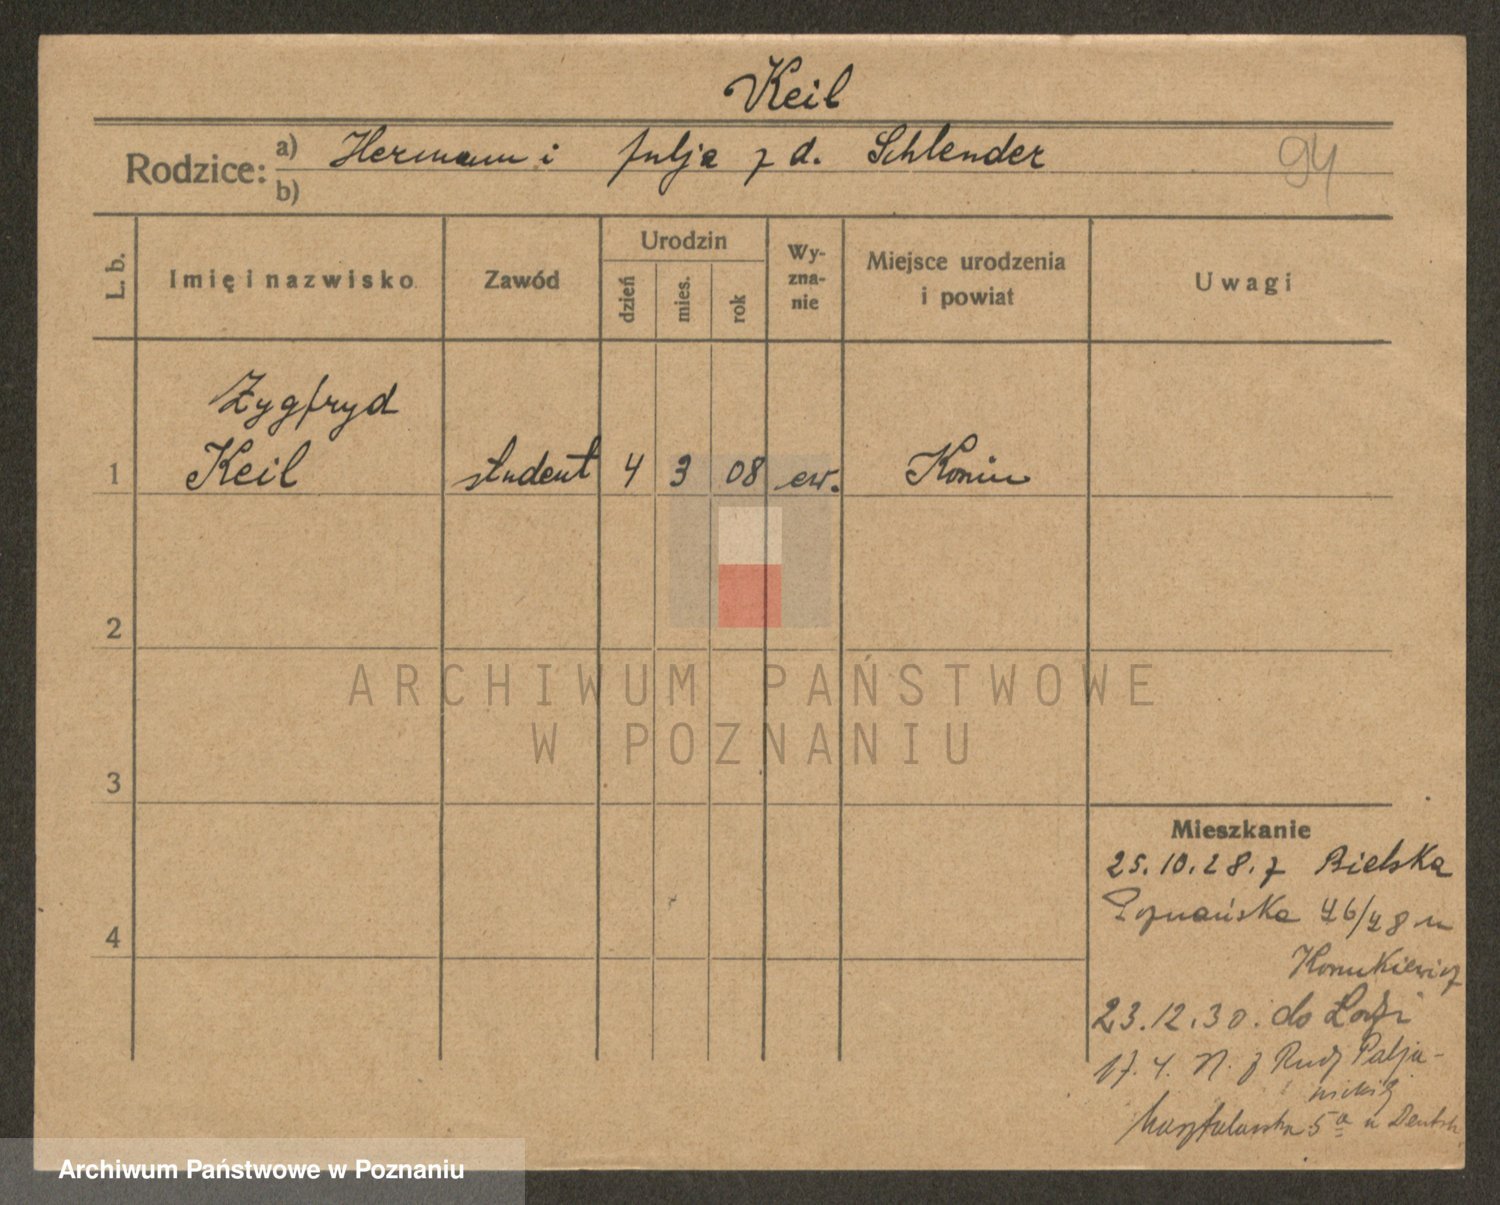 Keil
Rodzice: a) Hermann i Julja z d. Schlender
b)
94
L. b.
Imię i nazwisko
Zawód
Urodzin
dzień
mies.
rok
Wy-
zna-
nie
Miejsce urodzenia
i powiat
Uwagi
Zygfryd
1 Keil student 4 3 08 ew. Konin
2
3
4
Mieszkanie
25.10.28. z Bielska
Poznańska 46/48 u
23.12.30. do Łodzi
z Rudy Pabja-
nickiej
5a u Deutsch
ARCHIWUM PAŃSTWOWE
W POZNANIU
Archiwum Państwowe w Poznaniu